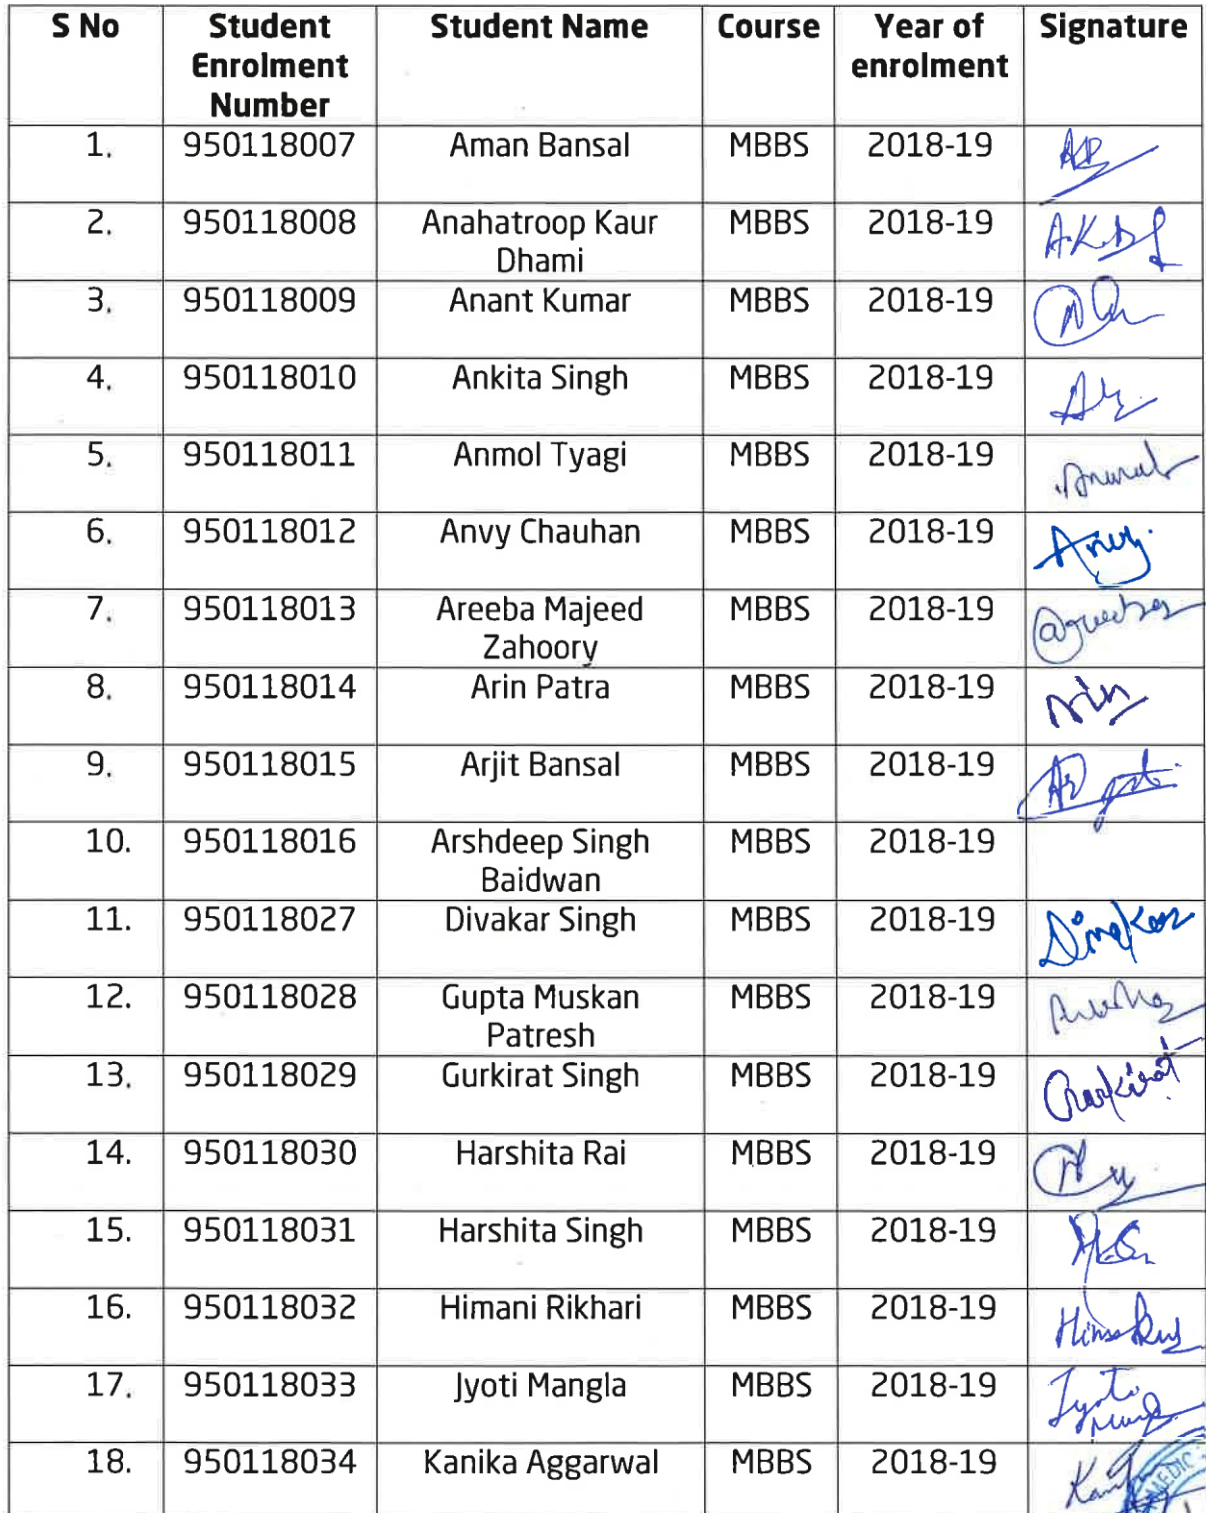 S No Student Enrolment Number Student Name Course Year of enrolment Signature
1. 950118007 Aman Bansal MBBS 2018-19 AB
2. 950118008 Anahatroop Kaur Dhami MBBS 2018-19 A.K.D
3. 950118009 Anant Kumar MBBS 2018-19
4. 950118010 Ankita Singh MBBS 2018-19
5. 950118011 Anmol Tyagi MBBS 2018-19
6. 950118012 Anvy Chauhan MBBS 2018-19 Anvy
7. 950118013 Areeba Majeed Zahoory MBBS 2018-19 Areeba
8. 950118014 Arin Patra MBBS 2018-19
9. 950118015 Arjit Bansal MBBS 2018-19
10. 950118016 Arshdeep Singh Baidwan MBBS 2018-19
11. 950118027 Divakar Singh MBBS 2018-19
12. 950118028 Gupta Muskan Patresh MBBS 2018-19
13. 950118029 Gurkirat Singh MBBS 2018-19 Gurkirat
14. 950118030 Harshita Rai MBBS 2018-19
15. 950118031 Harshita Singh MBBS 2018-19
16. 950118032 Himani Rikhari MBBS 2018-19
17. 950118033 Jyoti Mangla MBBS 2018-19 Jyoti
18. 950118034 Kanika Aggarwal MBBS 2018-19